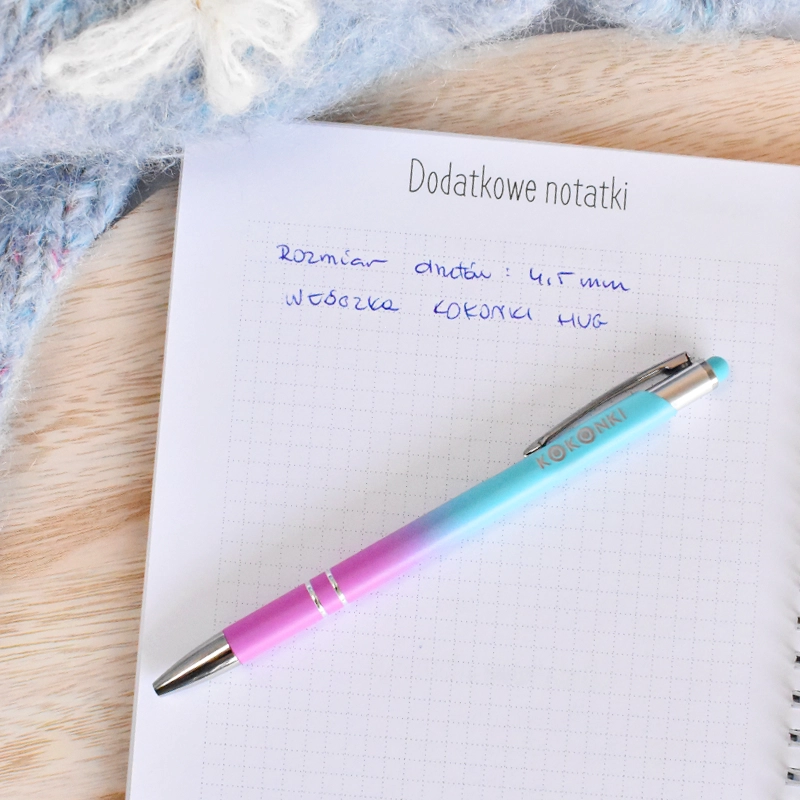 Dodatkowe notatki
Rozmiar drutów: 4,5 mm
WŁÓCZKA KOKONKI HUG
KOKONKI